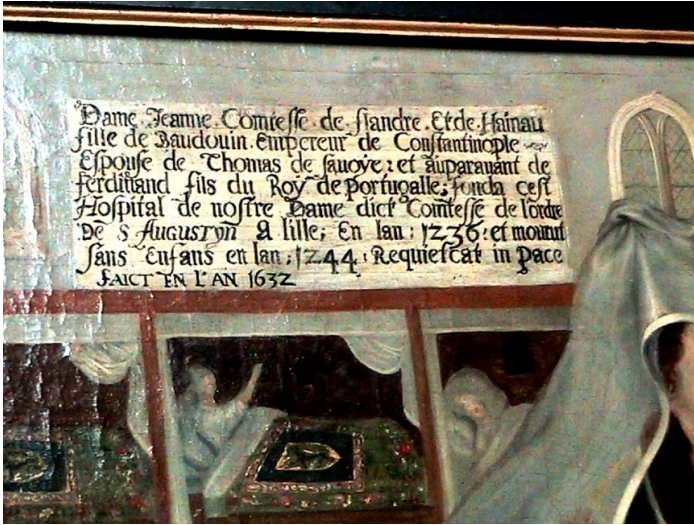 Dame Jeanne Comtesse de flandre. Et de Hainau
fille de Baudouin Empereur de Constantinople
Espouse de Thomas de sauoye; et auparauant de
ferdinand fils du Roy de Portugalle; fonda cest
Hospital de nostre Dame dict Comtesse de l'ordre
De S AUGUSTYN A lille; En lan; 1236: et mourut
sans Enfans en lan; 1244: Requiescat in Pace
FAICT EN L'AN 1632